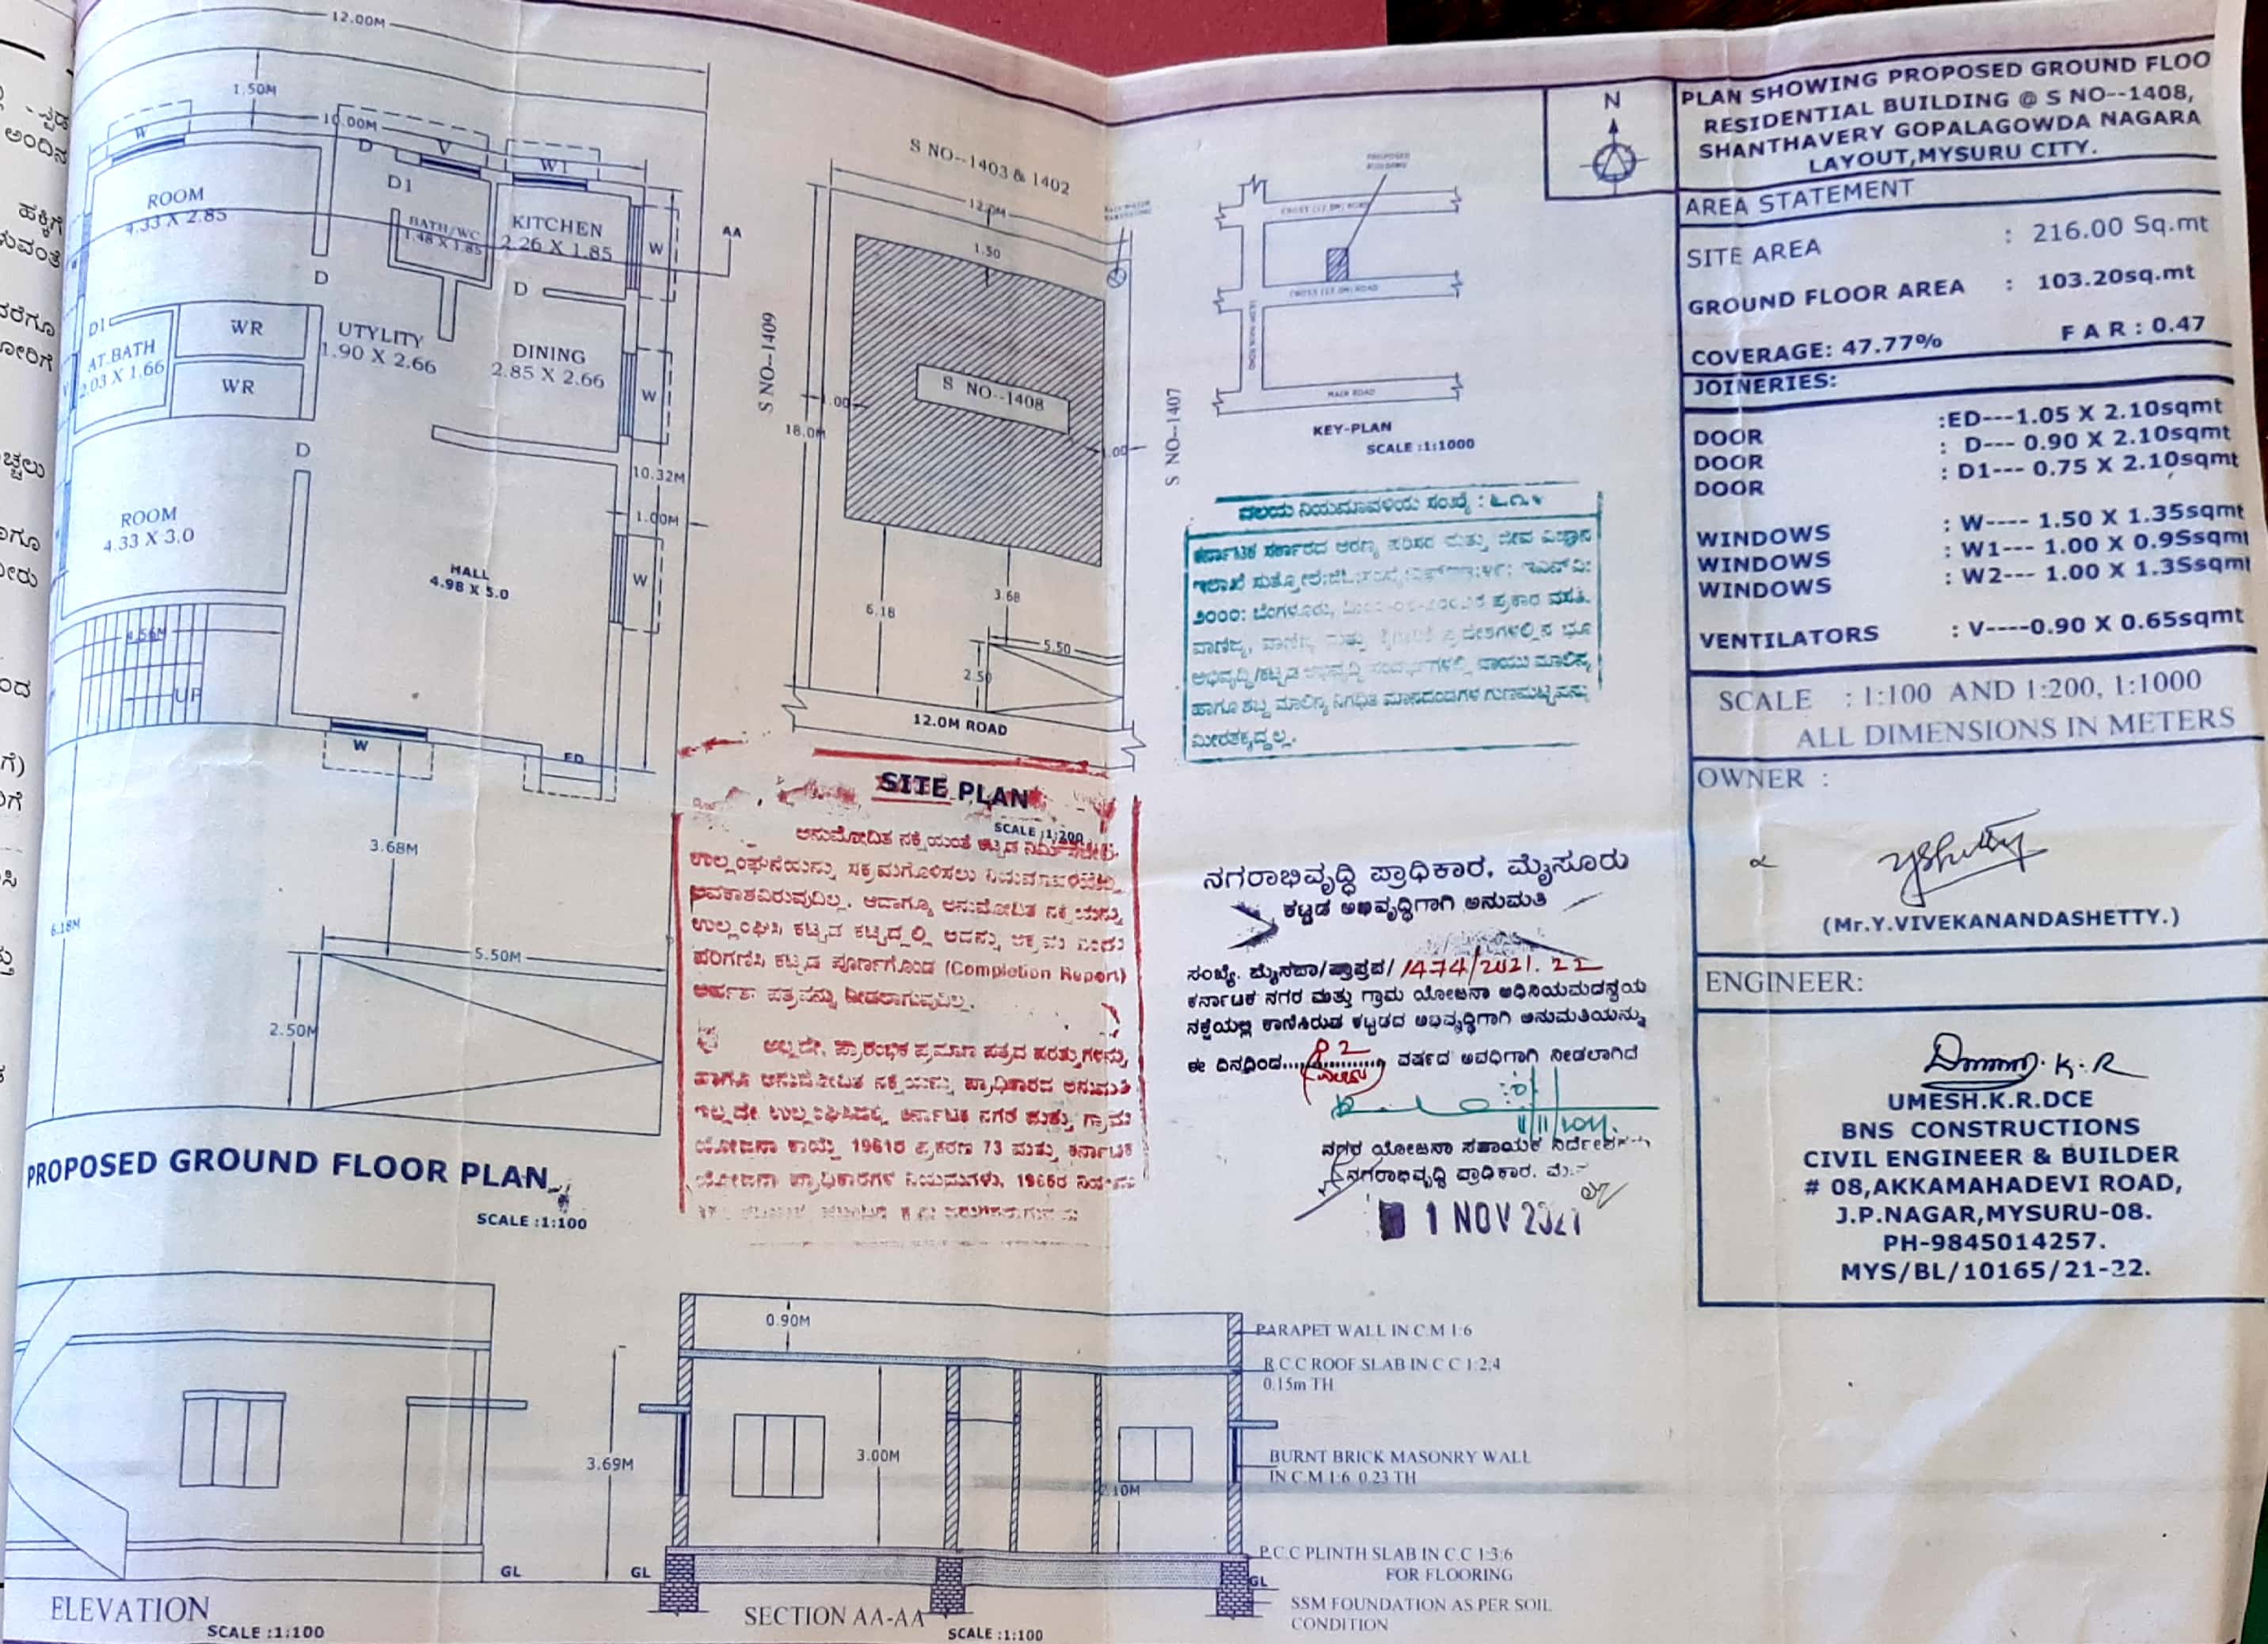 12.00M
1.50M
10.00M
W
D
V
W1
D1
ROOM
4.33 X 2.85
BATH/WC
1.48 X 1.85
KITCHEN
2.26 X 1.85
W
AA
D
D
D1
WR
AT.BATH
2.03 X 1.66
UTYLITY
1.90 X 2.66
DINING
2.85 X 2.66
W
WR
D
ROOM
4.33 X 3.0
10.32M
1.00M
HALL
4.98 X 5.0
W
4.56M
UP
W
ED
3.68M
6.18M
5.50M
2.50M
PROPOSED GROUND FLOOR PLAN
SCALE :1:100
S NO--1403 & 1402
12.0M
1.50
S NO--1409
S NO--1408
18.0M
1.00
1.00
S NO--1407
6.18
3.68
5.50
2.50
12.0M ROAD
SITE PLAN
SCALE :1:200
ಅನುಮೋದಿತ ನಕ್ಷೆಯಂತೆ ಕಟ್ಟಡ
ಉಲ್ಲಂಘನೆಯನ್ನು ಸಕ್ರಮಗೊಳಿಸಲು
ಅವಕಾಶವಿರುವುದಿಲ್ಲ. ಆದಾಗ್ಯೂ ಅನುಮೋದಿತ ನಕ್ಷೆಯನ್ನು
ಉಲ್ಲಂಘಿಸಿ ಕಟ್ಟಡ ಕಟ್ಟಿದ್ದಲ್ಲಿ ಅದನ್ನು ಅಕ್ರಮ ಎಂದು
ಪರಿಗಣಿಸಿ ಕಟ್ಟಡ ಪೂರ್ಣಗೊಂಡ (Completion Report)
ಅರ್ಹತಾ ಪತ್ರವನ್ನು ನೀಡಲಾಗುವುದಿಲ್ಲ.
ಅಲ್ಲದೇ, ಪ್ರಾರಂಭಿಕ ಪ್ರಮಾಣ ಪತ್ರದ ಷರತ್ತುಗಳನ್ನು
ಹಾಗೂ ಅನುಮೋದಿತ ನಕ್ಷೆಯನ್ನು ಪ್ರಾಧಿಕಾರದ ಅನುಮತಿ
ಇಲ್ಲದೇ ಉಲ್ಲಂಘಿಸಿದಲ್ಲಿ ಕರ್ನಾಟಕ ನಗರ ಮತ್ತು ಗ್ರಾಮ
ಯೋಜನಾ ಕಾಯ್ದೆ 1961ರ ಪ್ರಕರಣ 73 ಮತ್ತು ಕರ್ನಾಟಕ
ಯೋಜನಾ ಪ್ರಾಧಿಕಾರಗಳ ನಿಯಮಗಳು, 1965ರ
CROSS (12.0M) ROAD
CROSS (12.0M) ROAD
MAIN ROAD
KEY-PLAN
SCALE :1:1000
ವಲಯ ನಿಯಮಾವಳಿಯ ಸಂಖ್ಯೆ :
ಕರ್ನಾಟಕ ಸರ್ಕಾರದ ಅರಣ್ಯ ಪರಿಸರ ಮತ್ತು ಜೀವ ವಿಜ್ಞಾನ
ಇಲಾಖೆ
೨೦೦೦: ಬೆಂಗಳೂರು, ಪ್ರಕಾರ ವಸತಿ,
ವಾಣಿಜ್ಯ, ಮತ್ತು ಪ್ರದೇಶಗಳಲ್ಲಿನ ಭೂ
ಅಭಿವೃದ್ಧಿ/ಕಟ್ಟಡ ಅಭಿವೃದ್ಧಿ ವಾಯು ಮಾಲಿನ್ಯ
ಹಾಗೂ ಶಬ್ದ ಮಾಲಿನ್ಯ ನಿಗಧಿತ ಮಾನದಂಡಗಳ ಗುಣಮಟ್ಟವನ್ನು
ಮೀರತಕ್ಕದ್ದಲ್ಲ.
ನಗರಾಭಿವೃದ್ಧಿ ಪ್ರಾಧಿಕಾರ, ಮೈಸೂರು
ಕಟ್ಟಡ ಅಭಿವೃದ್ಧಿಗಾಗಿ ಅನುಮತಿ
ಸಂಖ್ಯೆ. ಮೈನಪ್ರಾ/ಪ್ರಾಪ್ರಪ/1474/2021.22
ಕರ್ನಾಟಕ ನಗರ ಮತ್ತು ಗ್ರಾಮ ಯೋಜನಾ ಅಧಿನಿಯಮದನ್ವಯ
ನಕ್ಷೆಯಲ್ಲಿ ಕಾಣಿಸಿರುವ ಕಟ್ಟಡದ ಅಭಿವೃದ್ಧಿಗಾಗಿ ಅನುಮತಿಯನ್ನು
ಈ ದಿನದಿಂದ.............. ವರ್ಷದ ಅವಧಿಗಾಗಿ ನೀಡಲಾಗಿದೆ
ನಗರ ಯೋಜನಾ ಸಹಾಯಕ
ನಗರಾಭಿವೃದ್ಧಿ ಪ್ರಾಧಿಕಾರ,
1 NOV 2021
N
PLAN SHOWING PROPOSED GROUND FLOO
RESIDENTIAL BUILDING @ S NO--1408,
SHANTHAVERY GOPALAGOWDA NAGARA
LAYOUT,MYSURU CITY.
AREA STATEMENT
SITE AREA : 216.00 Sq.mt
GROUND FLOOR AREA : 103.20sq.mt
COVERAGE: 47.77% F A R : 0.47
JOINERIES:
DOOR :ED---1.05 X 2.10sqmt
DOOR : D--- 0.90 X 2.10sqmt
DOOR : D1--- 0.75 X 2.10sqmt
WINDOWS : W---- 1.50 X 1.35sqmt
WINDOWS : W1--- 1.00 X 0.9Ssqmt
WINDOWS : W2--- 1.00 X 1.3Ssqmt
VENTILATORS : V----0.90 X 0.65sqmt
SCALE : 1:100 AND 1:200, 1:1000
ALL DIMENSIONS IN METERS
OWNER :
(Mr.Y.VIVEKANANDASHETTY.)
ENGINEER:
UMESH.K.R.DCE
BNS CONSTRUCTIONS
CIVIL ENGINEER & BUILDER
# 08,AKKAMAHADEVI ROAD,
J.P.NAGAR,MYSURU-08.
PH-9845014257.
MYS/BL/10165/21-22.
GL
ELEVATION
SCALE :1:100
0.90M
3.69M
3.00M
2.10M
GL
GL
SECTION AA-AA
SCALE :1:100
PARAPET WALL IN C.M 1:6
R.C.C ROOF SLAB IN C C 1:2:4
0.15m TH
BURNT BRICK MASONRY WALL
IN C.M 1:6 0.23 TH
P.C.C PLINTH SLAB IN C.C 1:3:6
FOR FLOORING
SSM FOUNDATION AS PER SOIL
CONDITION